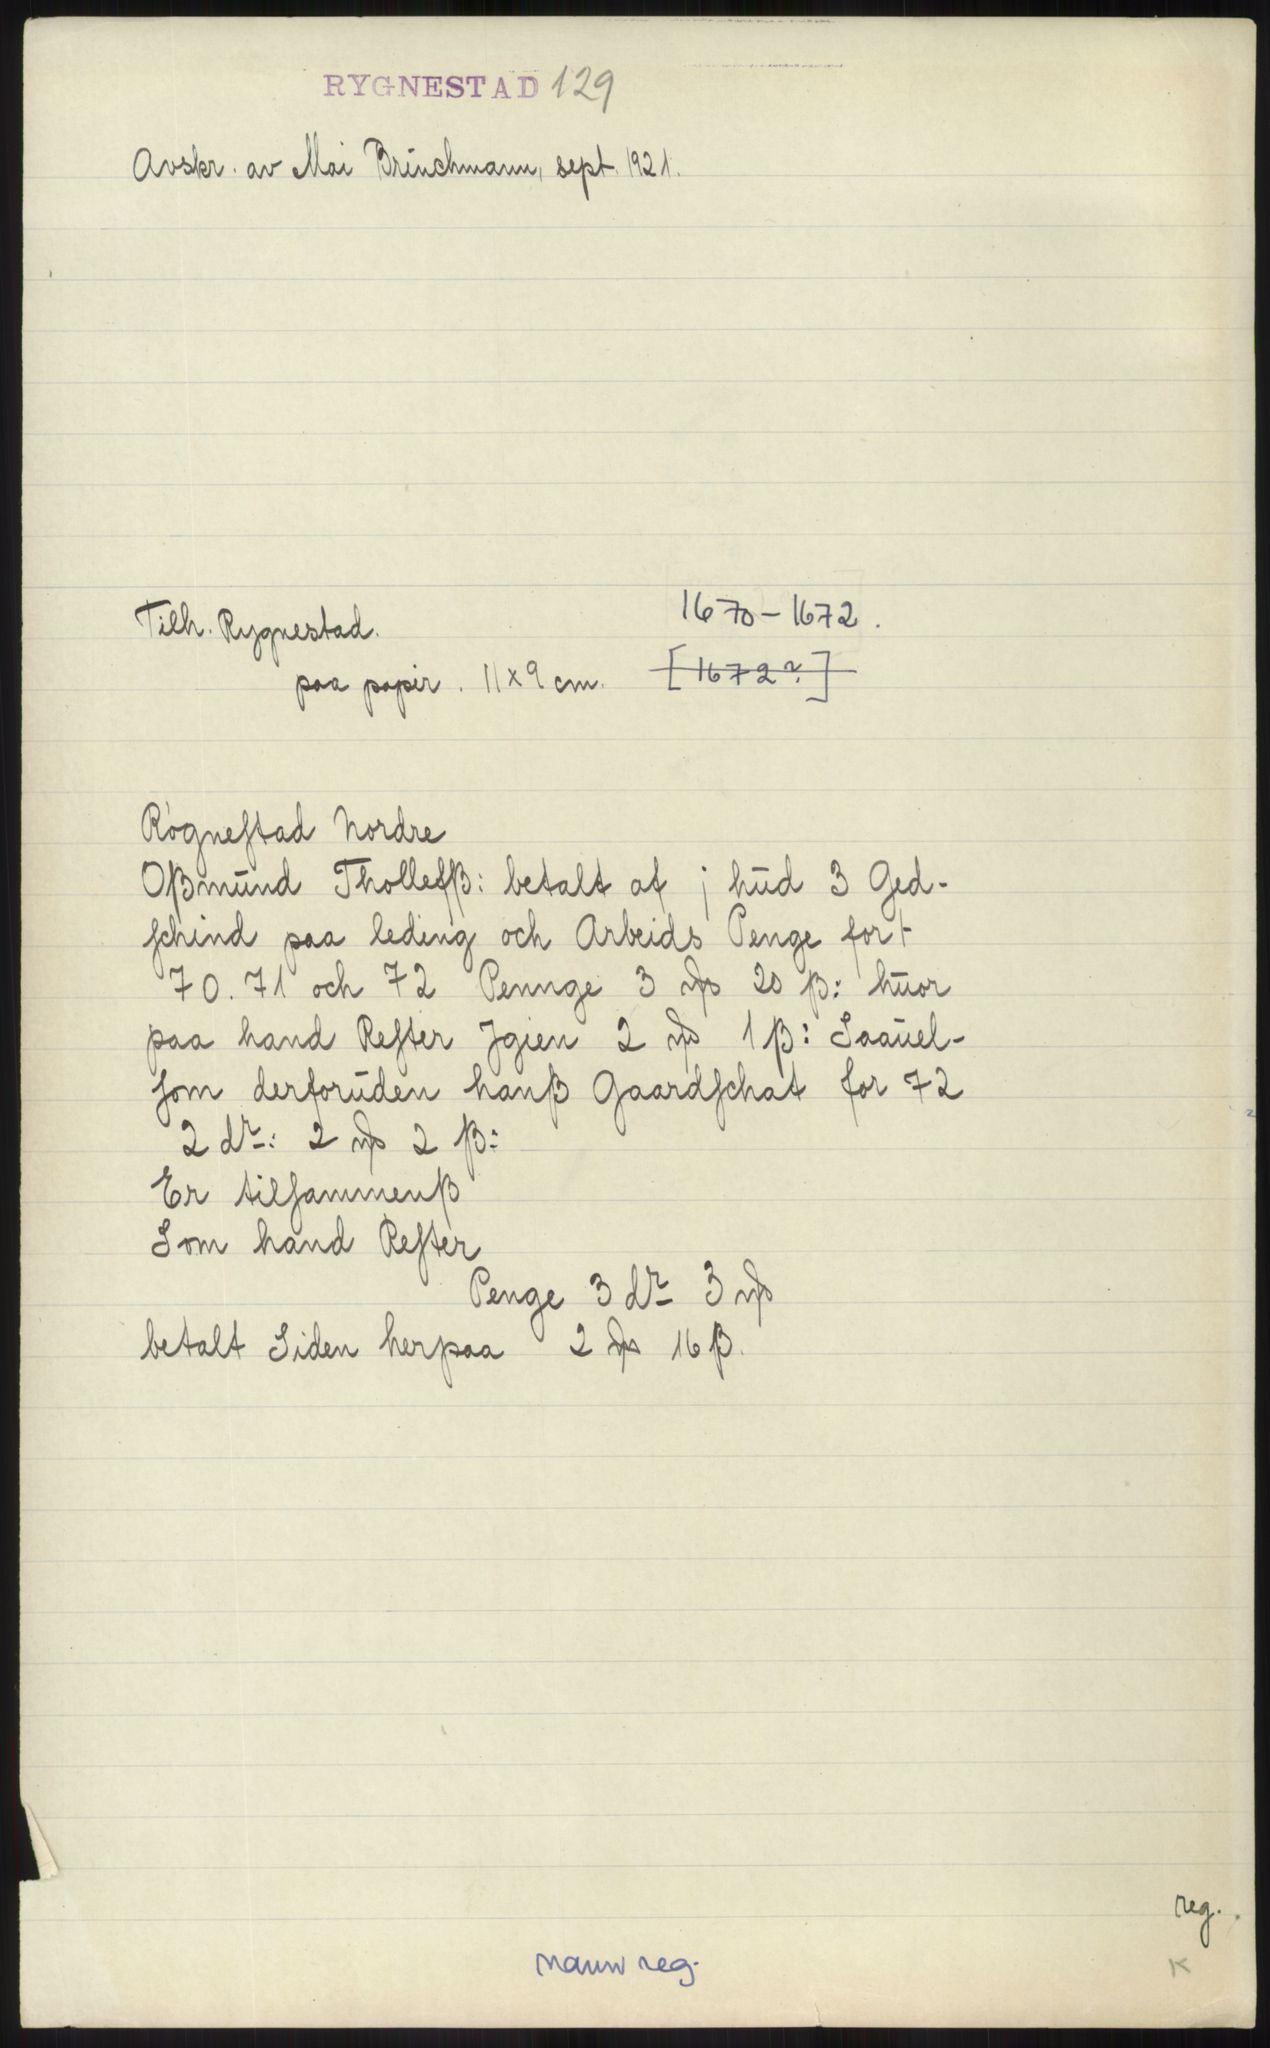 RYGNESTAD 129
Avskr. av Mai Brinchmann, sept. 1921.
Tilh. Rygnestad. 1670-1672.
paa papir. 11x9 cm. [1672?]
Rógneſtad Nordre
Oßmūnd Thollefß: betalt af j hūd 3 Ged-
ſchind paa leding och Arbeids Penge for
70. 71 och 72 Pennge 3 20 ß: hūor
paa hand Reſter Jgien 2 1 ß: Saaūel-
ſom derforūden hanß Gaardſchat for 72
2 dr: 2 2 ß:
Er tilſammenß
Som hand Reſter
Penge 3 dr 3
betalt Siden herpaa 2 16 ß.
reg.
navnreg.
K